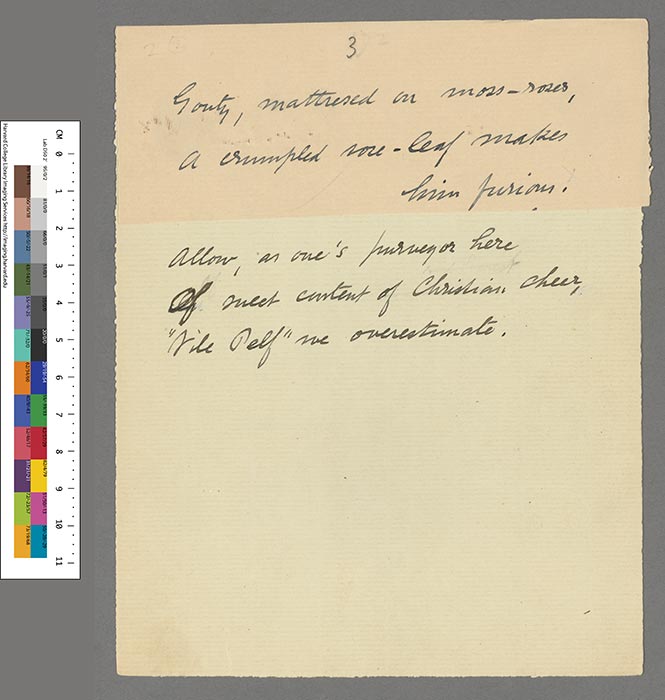 3
Gouty, mattresed on moss-roses,
A crumpled rose-leaf makes
him furious.
Allow, as one's purveyor here
Of sweet content of Christian cheer,
"Vile Pelf" we overestimate.
CM 0 1 2 3 4 5 6 7 8 9 10 11
Harvard College Library Imaging Services http://imaging.harvard.edu